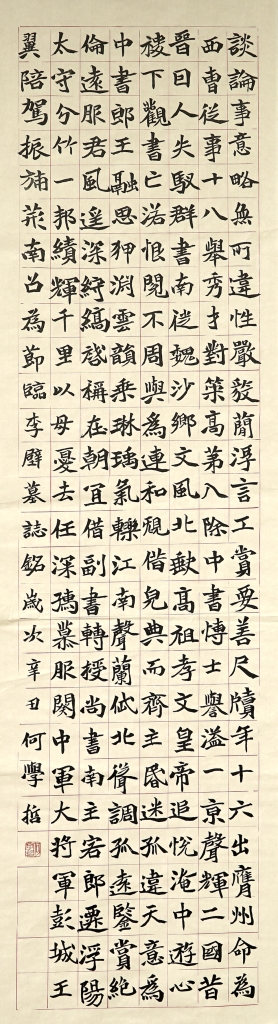 談論事意略無所違性嚴毅簡浮言工賞要善尺牘年十六出膺州命為
西曹從事十八舉秀才對策高第入除中書博士譽溢一京聲輝二國昔
晉日人失馭群書南徙魏沙鄉文風北缺高祖孝文皇帝追悅淹中遊心
稷下觀書亡落恨閱不周與為連和規借完典而齊主昏迷孤違天意為
中書郎王融思狎淵雲韻乘琳瑀氣轢江南聲蘭岱北聳調孤遠鑒賞絕
倫遠服君風遙深紵縞啓稱在朝宜借副書轉授尚書南主客郎遷浮陽
太守分竹一邦績輝千里以母憂去任深孺慕服闋中軍大將軍彭城王
翼陪駕振旆荊南召為節臨李璧墓誌銘歲次辛丑何學哲